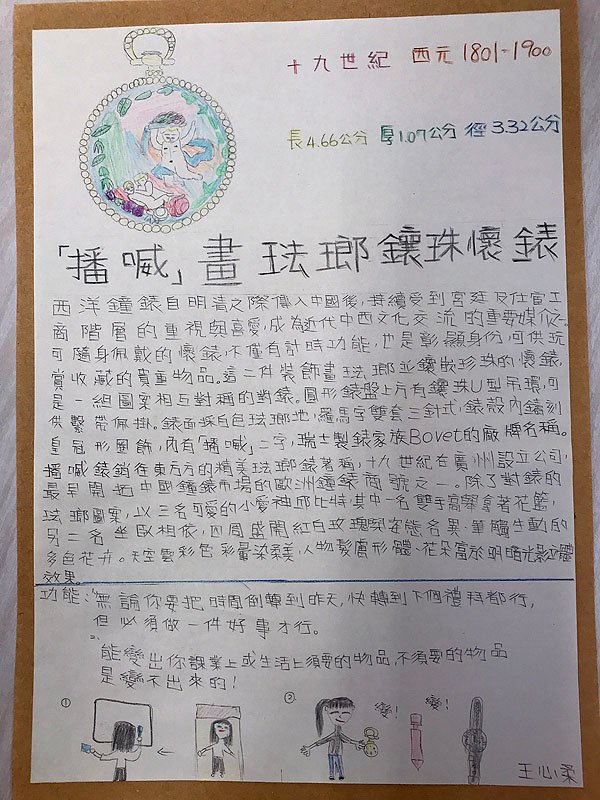 十九世紀 西元1801-1900
長4.66公分 厚1.07公分 徑3.32公分
「播喊」畫琺瑯鑲珠懷錶
西洋鐘錶自明清之際傳入中國後,持續受到宮廷及仕宦工
商階層的重視與喜愛,成為近代中西文化交流的重要媒介之一。
可隨身佩戴的懷錶,不僅有計時功能,也是彰顯身份,可供玩
賞收藏的貴重物品。這二件裝飾畫琺瑯並鑲嵌珍珠的懷錶,
是一組圖案相互對稱的對錶。圓形錶盤上方有鑲珠U型吊環,可
供繫帶佩掛。錶面採白色琺瑯地,羅馬字雙套三針式,錶殼內鐫刻
皇冠形圖飾,內有「播喊」二字,瑞士製錶家族Bovet的廠牌名稱。
播喊錶銷往東方的精美琺瑯錶著稱,十九世紀在廣州設立公司,
最早開拓中國鐘錶市場的歐洲鐘錶商號之一。除了對錶的
琺瑯圖案,以三名可愛的小愛神邱比特,其中一名雙手高舉拿著花籃,
另二名坐臥相依,四周盛開紅白玫瑰與姿態各異、筆觸生動的
多色花卉。天空雲彩色彩暈染柔美,人物髮膚形體、花朵富於明暗光影立體
效果。
功能:1.無論你要把時間倒轉到昨天,快轉到下個禮拜都行,
但必須做一件好事才行。
2.能變出你課業上或生活上須要的物品,不須要的物品
是變不出來的!
① ② 變! 變!
王心柔